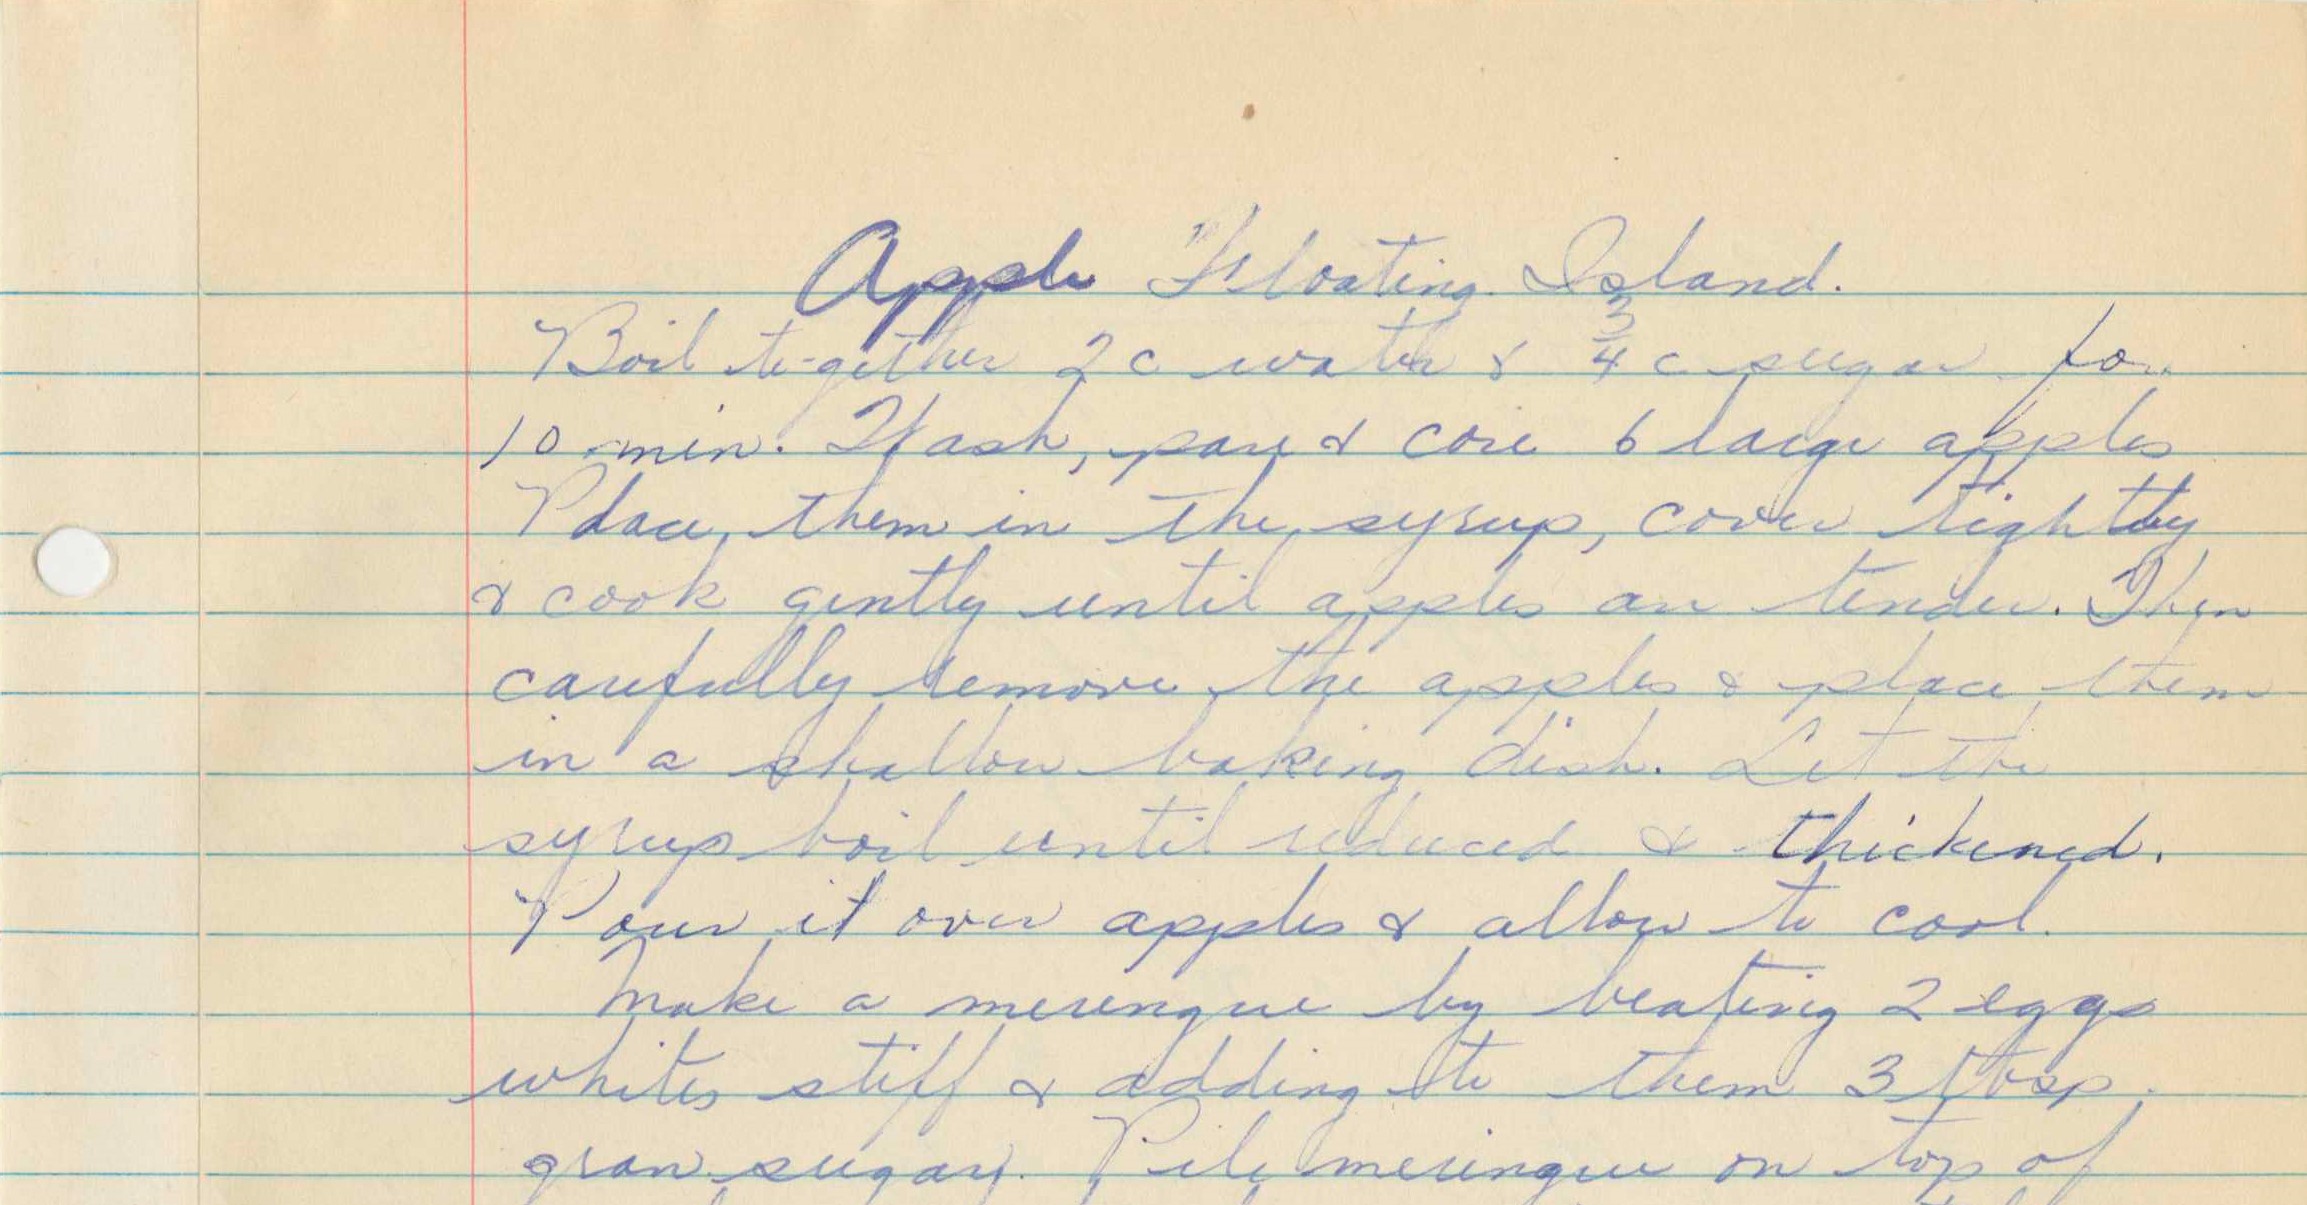 Apple Floating Island.
Boil to-gether 2 c water & 3/4 c sugar for
10 min. Wash, pare & core 6 large apples
Place them in the syrup, cover tightly
& cook gently until apples are tender. Then
carefully remove the apples & place them
in a shallow baking dish. Let the
syrup boil until reduced & thickened.
Pour it over apples & allow to cool.
Make a merengue by beating 2 eggs
whites stiff & adding to them 3 tbsp.
gran. sugar. Pile meringue on top of